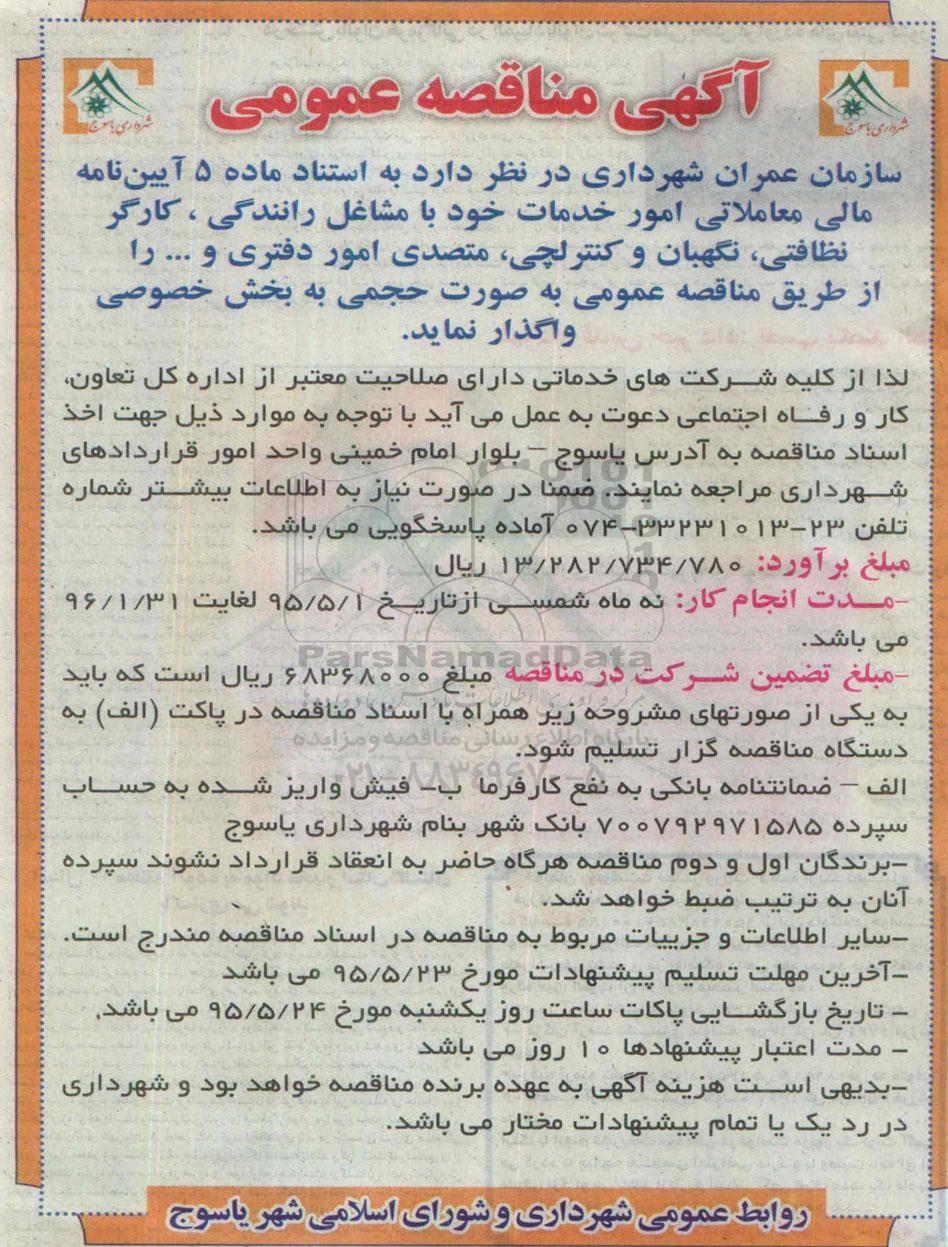 آگهی مناقصه عمومی
شهرداری یاسوج
شهرداری یاسوج
سازمان عمران شهرداری در نظر دارد به استناد ماده ۵ آیین‌نامه
مالی معاملاتی امور خدمات خود با مشاغل رانندگی ، کارگر
نظافتی، نگهبان و کنترلچی، متصدی امور دفتری و ... را
از طریق مناقصه عمومی به صورت حجمی به بخش خصوصی
واگذار نماید.
لذا از کلیه شرکت های خدماتی دارای صلاحیت معتبر از اداره کل تعاون،
کار و رفاه اجتماعی دعوت به عمل می آید با توجه به موارد ذیل جهت اخذ
اسناد مناقصه به آدرس یاسوج – بلوار امام خمینی واحد امور قراردادهای
شهرداری مراجعه نمایند. ضمنا در صورت نیاز به اطلاعات بیشتر شماره
تلفن ۲۳-۳۳۲۳۱۰۱۳-۰۷۴ آماده پاسخگویی می باشد.
مبلغ برآورد: ۱۳/۲۸۲/۷۳۴/۷۸۰ ریال
-مدت انجام کار: نه ماه شمسی ازتاریخ ۹۵/۵/۱ لغایت ۹۶/۱/۳۱
می باشد.
-مبلغ تضمین شرکت در مناقصه مبلغ ۶۸۳۶۸۰۰۰ ریال است که باید
به یکی از صورتهای مشروحه زیر همراه با اسناد مناقصه در پاکت (الف) به
دستگاه مناقصه گزار تسلیم شود.
الف – ضمانتنامه بانکی به نفع کارفرما ب- فیش واریز شده به حساب
سپرده ۷۰۰۷۹۲۹۷۱۵۸۵ بانک شهر بنام شهرداری یاسوج
-برندگان اول و دوم مناقصه هرگاه حاضر به انعقاد قرارداد نشوند سپرده
آنان به ترتیب ضبط خواهد شد.
-سایر اطلاعات و جزییات مربوط به مناقصه در اسناد مناقصه مندرج است.
-آخرین مهلت تسلیم پیشنهادات مورخ ۹۵/۵/۲۳ می باشد
- تاریخ بازگشایی پاکات ساعت روز یکشنبه مورخ ۹۵/۵/۲۴ می باشد.
- مدت اعتبار پیشنهادها ۱۰ روز می باشد
-بدیهی است هزینه آگهی به عهده برنده مناقصه خواهد بود و شهرداری
در رد یک یا تمام پیشنهادات مختار می باشد.
روابط عمومی شهرداری و شورای اسلامی شهر یاسوج
ParsNamadData
پایگاه اطلاع رسانی مناقصه و مزایده